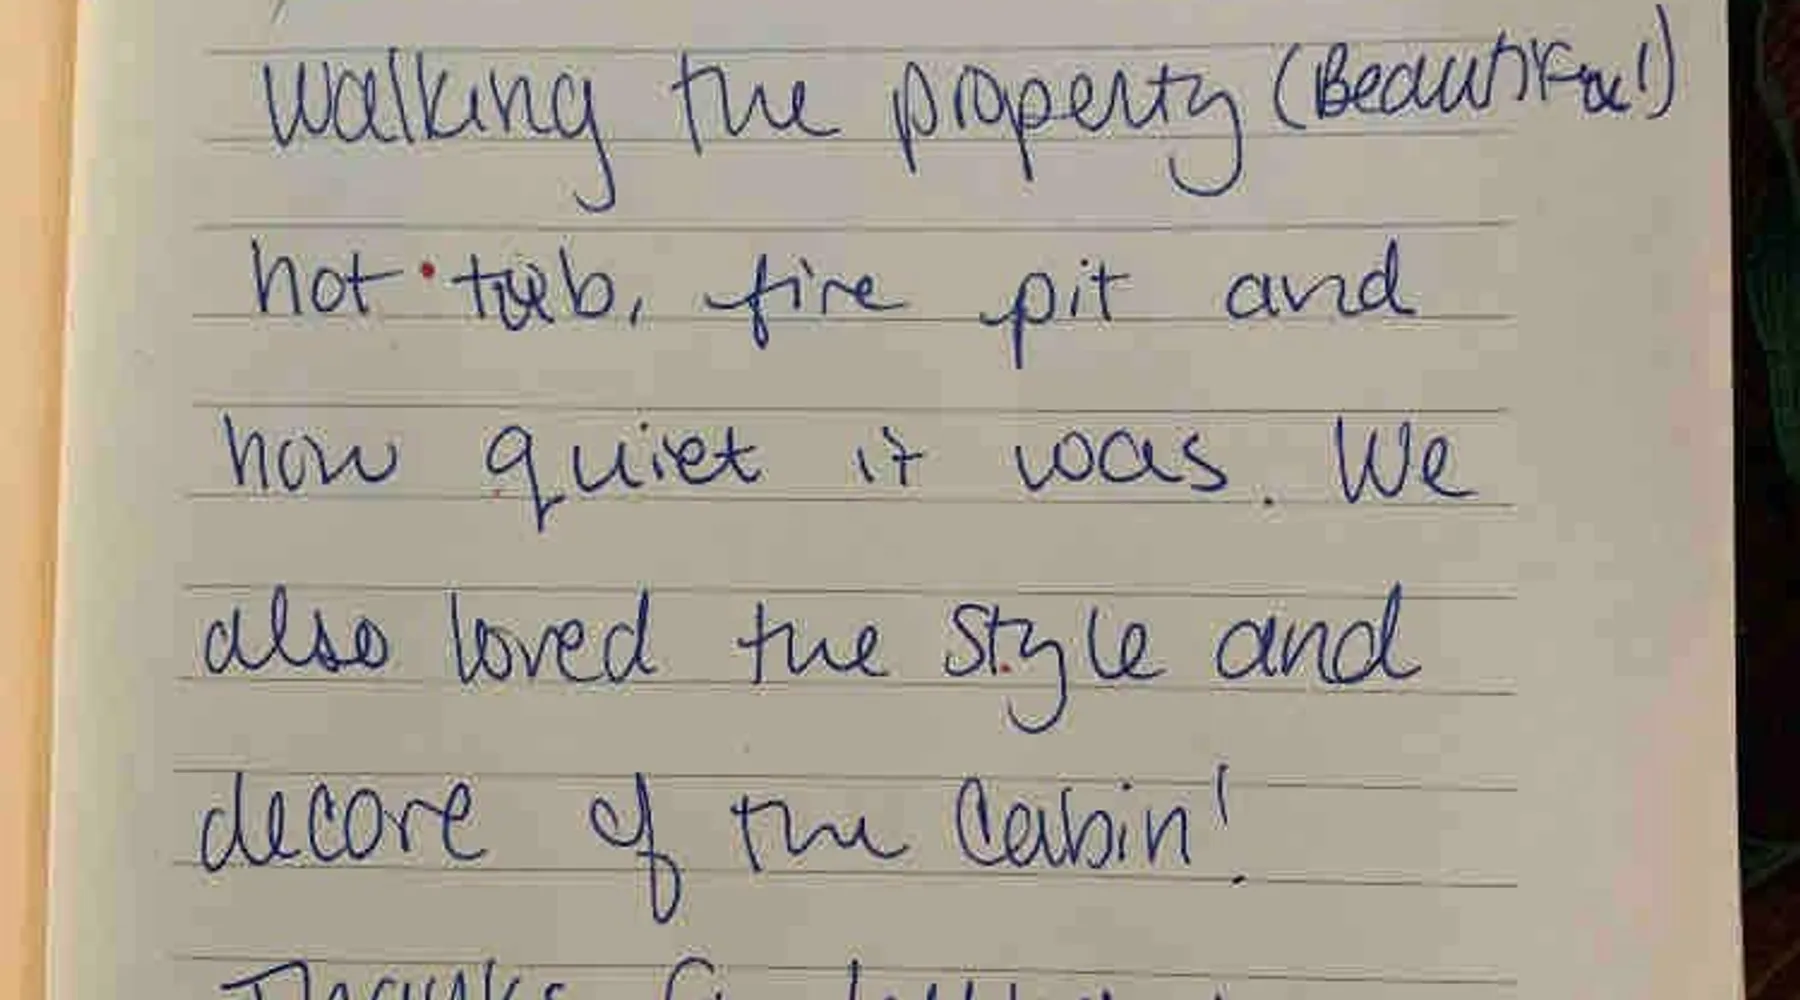 Walking the property (Beautiful!)
hot tub, fire pit and
how quiet it was. We
also loved the style and
decore of the Cabin!
Thanks for letting